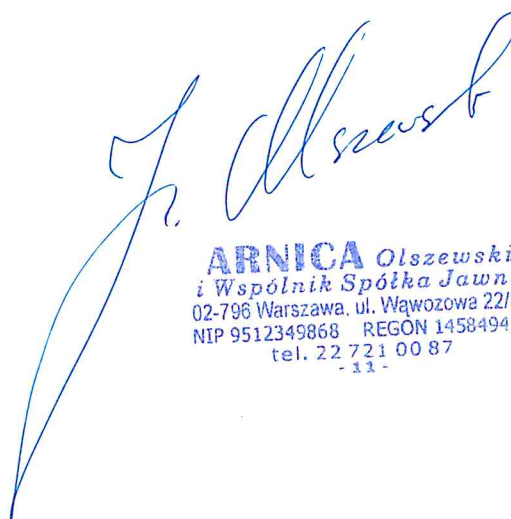 J. Olszewsk
ARNICA Olszewski
i Wspólnik Spółka Jawn
02-796 Warszawa, ul. Wąwozowa 22/
NIP 9512349868 REGON 1458494
tel. 22 721 00 87
- 11 -